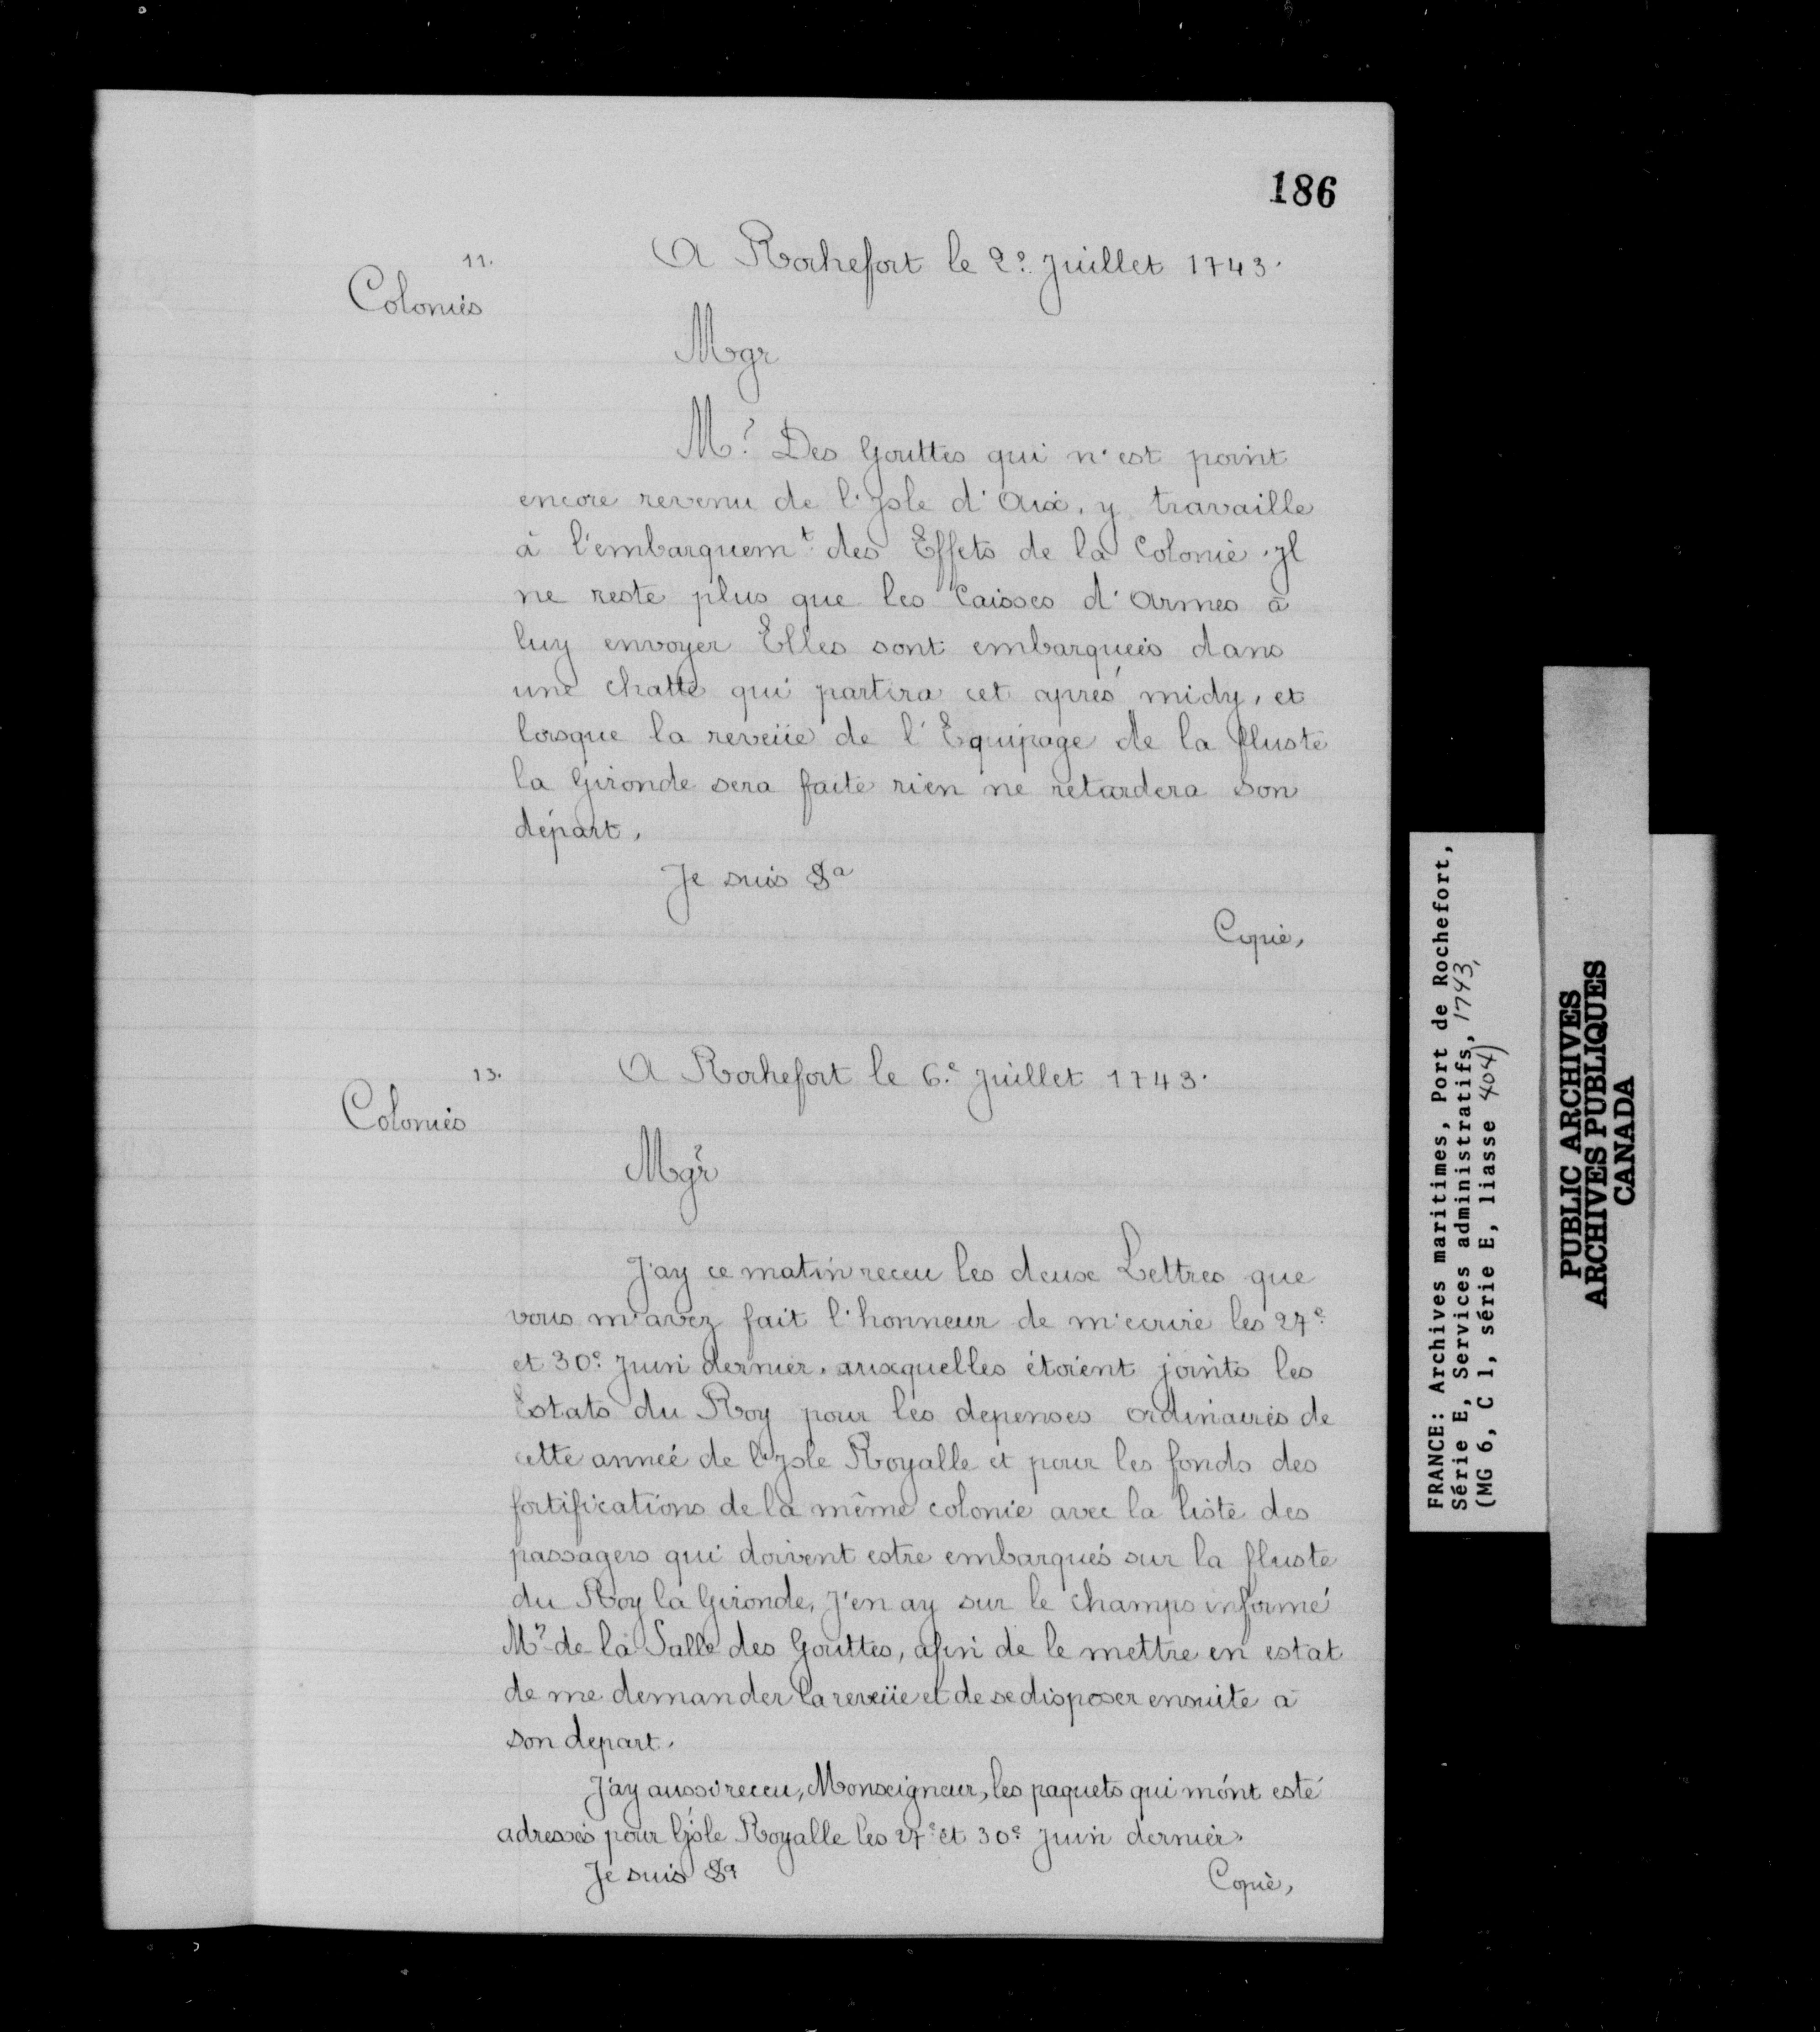 186
A Rochefort le 2e Juillet 1743.
11.
Colonies
Mgr
Mr Des Gouttes qui n'est point
encore revenu de l'Isle d'Aix, y travaille
à l'embarquemt des Effets de la Colonie. Il
ne reste plus que les Caisses d'Armes à
luy envoyer Elles sont embarquées dans
une chatte qui partira cet après midy, et
lorsque la reveüe de l'Equipage de la fluste
la Gironde sera faite rien ne retardera son
départ.
Je suis &a
Copié,
A Rochefort le 6e Juillet 1743.
13.
Colonies
Mgr
J'ay ce matin receu les deux Lettres que
vous m'avez fait l'honneur de m'ecrire les 27e
et 30e Juin dernier, auxquelles étoient joints les
Estats du Roy pour les depenses ordinaires de
cette année de l'Isle Royalle et pour les fonds des
fortifications de la même colonie avec la liste des
passagers qui doivent estre embarqués sur la fluste
du Roy la Gironde, J'en ay sur le champs informé
Mr de la Salle des Gouttes, afin de le mettre en estat
de me demander la reveüe et de se disposer ensuite à
son depart.
J'ay aussi receu, Monseigneur, les paquets qui m'ont esté
adressés pour l'Isle Royalle les 27e et 30e Juin dernier.
Je suis &a
Copié,
FRANCE: Archives maritimes, Port de Rochefort,
Série E, Services administratifs, 1743,
(MG 6, C 1, série E, liasse 404)
PUBLIC ARCHIVES
ARCHIVES PUBLIQUES
CANADA